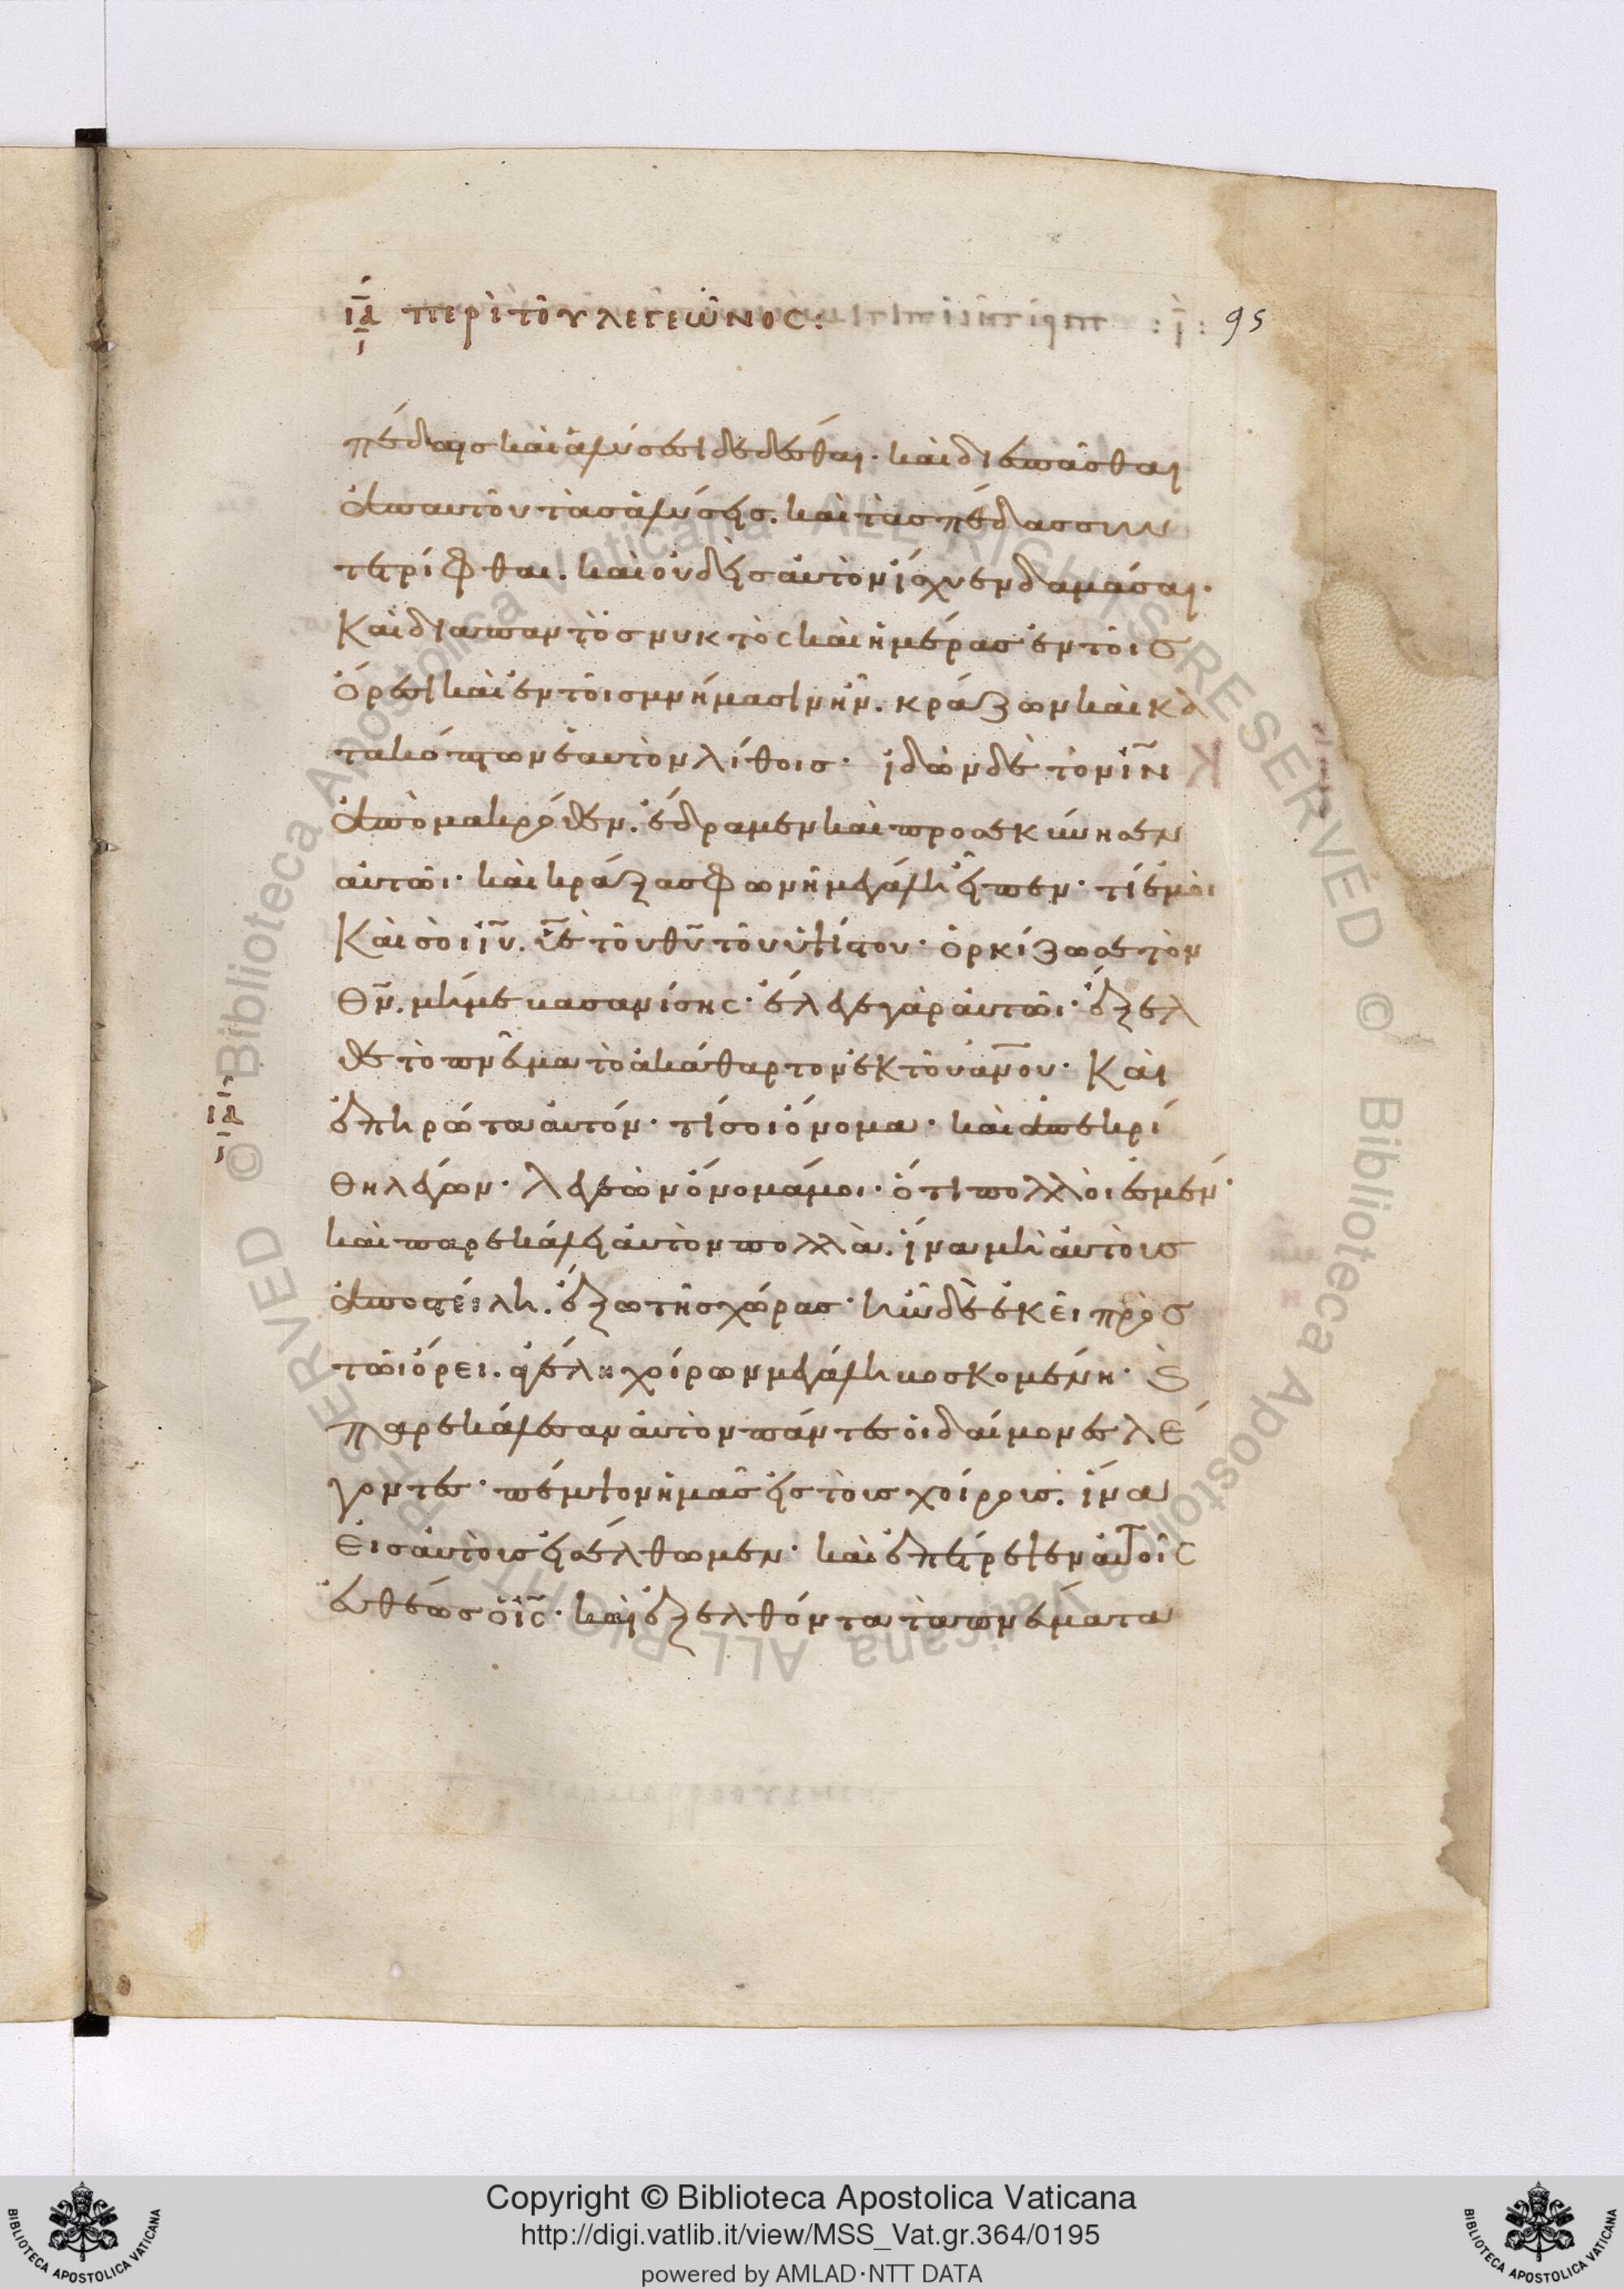 ια περὶ τοῦ λεγεῶνος:
95
πέδαις καὶ ἁλύσεσι δεδέσθαι· καὶ διεσπᾶσθαι
ἀπ αυτοῦ τὰς ἁλύσεις. καὶ τὰς πέδας συν
τετρίφθαι. καὶ οὐδεὶς αὐτὸν ἴσχυεν δαμάσαι·
Καὶ διαπαντὸς νυκτὸς καὶ ἡμέρας ἐν τοῖς
ὄρεσι καὶ ἐν τοῖς μνήμασιν ἦν. κράζων καὶ κα
τακόπτων ἑαυτὸν λίθοις· ἰδὼν δὲ τὸν ιν
ἀπὸ μακρόθεν. ἔδραμεν καὶ προσεκύνησεν
αὐτῶι· καὶ κράξας φωνῆ μεγάλη εἶπεν· τί ἐμοὶ
Καὶ σοὶ ιυ. υἱὲ τοῦ θυ τοῦ ὑψίστου· ὁρκίζω σε τὸν
θν. μή με βασανίσης· ἔλεγε γὰρ αὐτῶι· ἔξελ
θε τὸ πνεῦμα τὸ ἀκάθαρτον ἐκ τοῦ ανου· Καὶ
ἐπηρώτα αὐτόν· τί σοι ὄνομα· καὶ ἀπεκρί
θη λέγων· λεγεὼν ὄνομά μοι· ὅτι πολλοί ἐσμεν·
καὶ παρεκάλει αὐτὸν πολλὰ. ἵνα μὴ αὐτοὺς
ἀποστείλη. ἔξω τῆς χώρας· ἦν δὲ ἐκεῖ πρὸς
τῶι ὄρει. ἀγέλη χοίρων μεγάλη βοσκομένη· Ϗ
παρεκάλεσαν αὐτὸν πάντες οἱ δαίμονες λέ
γοντες· πέμψον ἡμᾶς εἰς τοὺς χοίρους. ἵνα
εἰς αὐτοὺς εἰσέλθωμεν· καὶ ἐπέτρεψεν αὐτοῖς
εὐθέως ὁ ις· καὶ ἐξελθόντα τὰ πνεύματα
ια
Copyright © Biblioteca Apostolica Vaticana
http://digi.vatlib.it/view/MSS_Vat.gr.364/0195
powered by AMLAD·NTT DATA
BIBLIOTECA APOSTOLICA VATICANA
BIBLIOTECA APOSTOLICA VATICANA